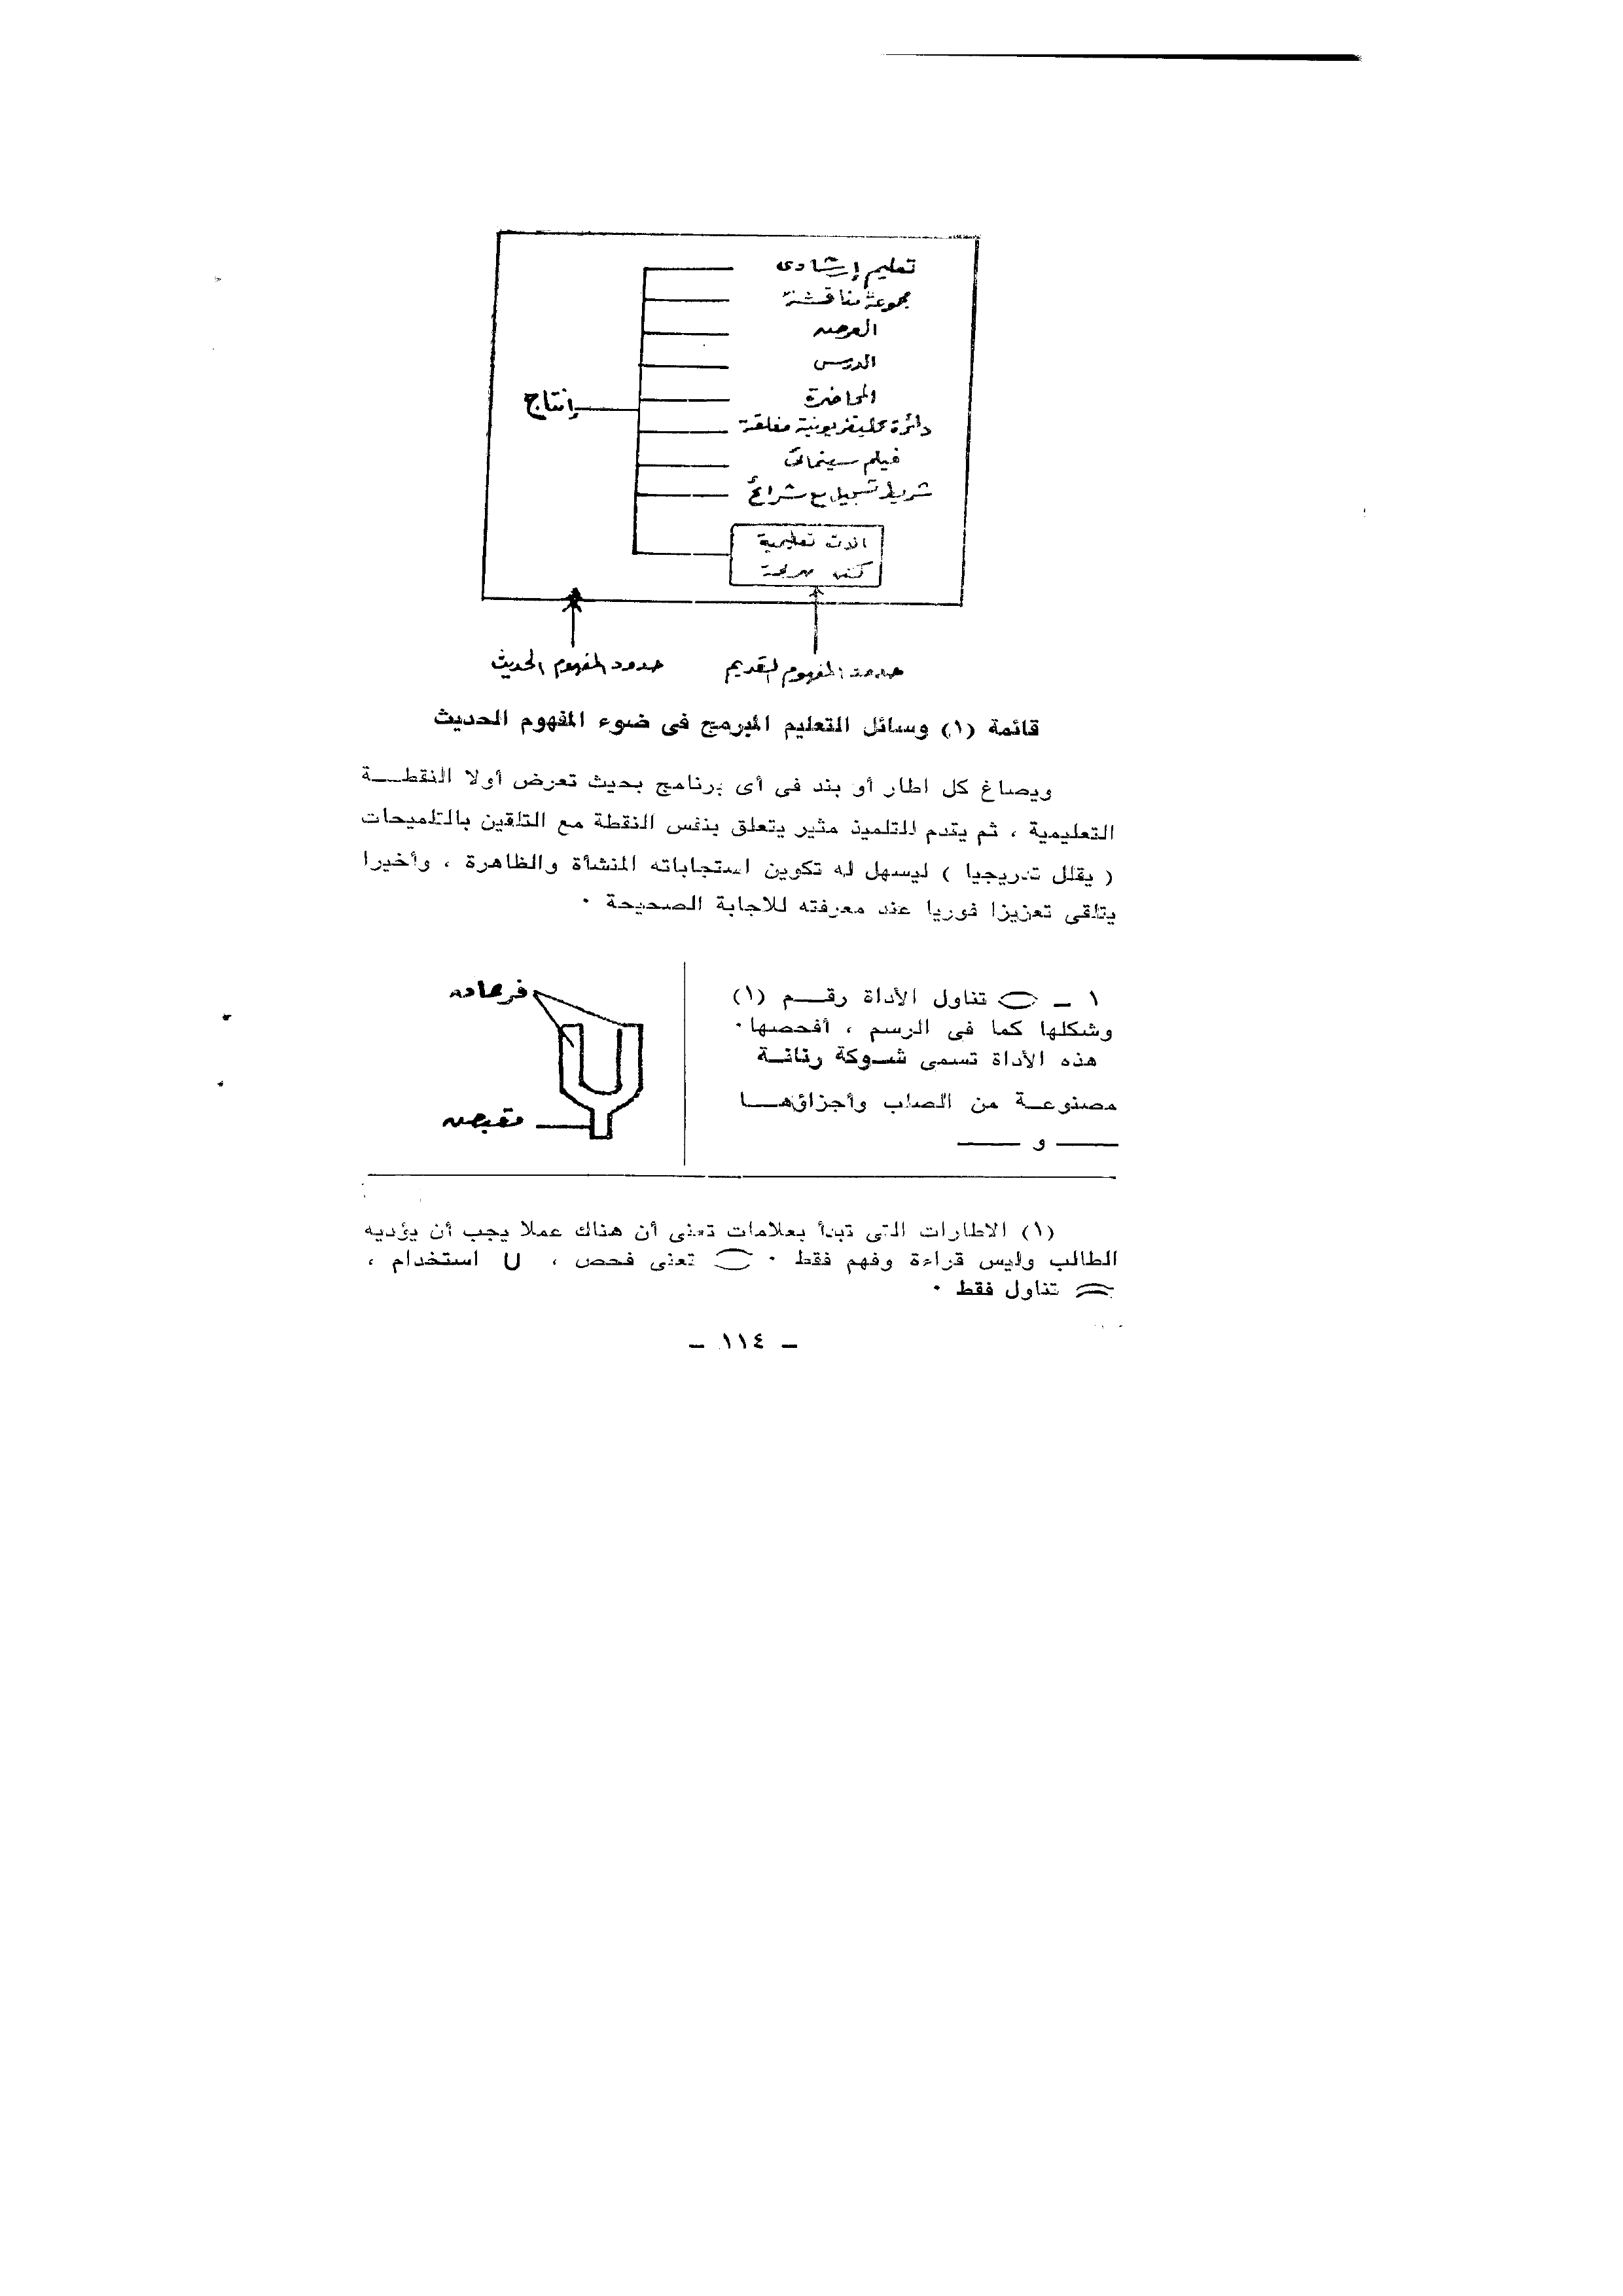 تعليم إرشادى
مجموعة مناقشة
العرض
الدرس
المحاضرة
إنتاج
دائرة تليفزيونية مغلقة
فيلم سينمائى
شريط تسجيل مع شرائح
الات تعليمية
كتب مبرمجة
حدود المفهوم القديم
حدود المفهوم الحديث
قائمة (١) وسائل التعليم المبرمج فى ضوء المفهوم الحديث
ويصاغ كل اطار أو بند فى أى برنامج بحيث تعرض أولا النقطة
التعليمية ، ثم يقدم للتلميذ مثير يتعلق بنفس النقطة مع التلقين بالتلميحات
( يقلل تدريجيا ) ليسهل له تكوين استجاباته المنشأة والظاهرة ، وأخيرا
يتلقى تعزيزا فوريا عند معرفته للاجابة الصحيحة ٠
١ ــ تناول الأداة رقم (١)
وشكلها كما فى الرسم ، أفحصها ٠
هذه الأداة تسمى شوكة رنانة
مصنوعة من الصلب وأجزاؤها
ــــ و ــــ
فرعان
مقبض
(١) الاطارات التى تبدأ بعلامات تعنى أن هناك عملا يجب أن يؤديه
الطالب وليس قراءة وفهم فقط ٠ تعنى فحص ، U استخدام ،
تناول فقط ٠
ــ ١١٤ ــ